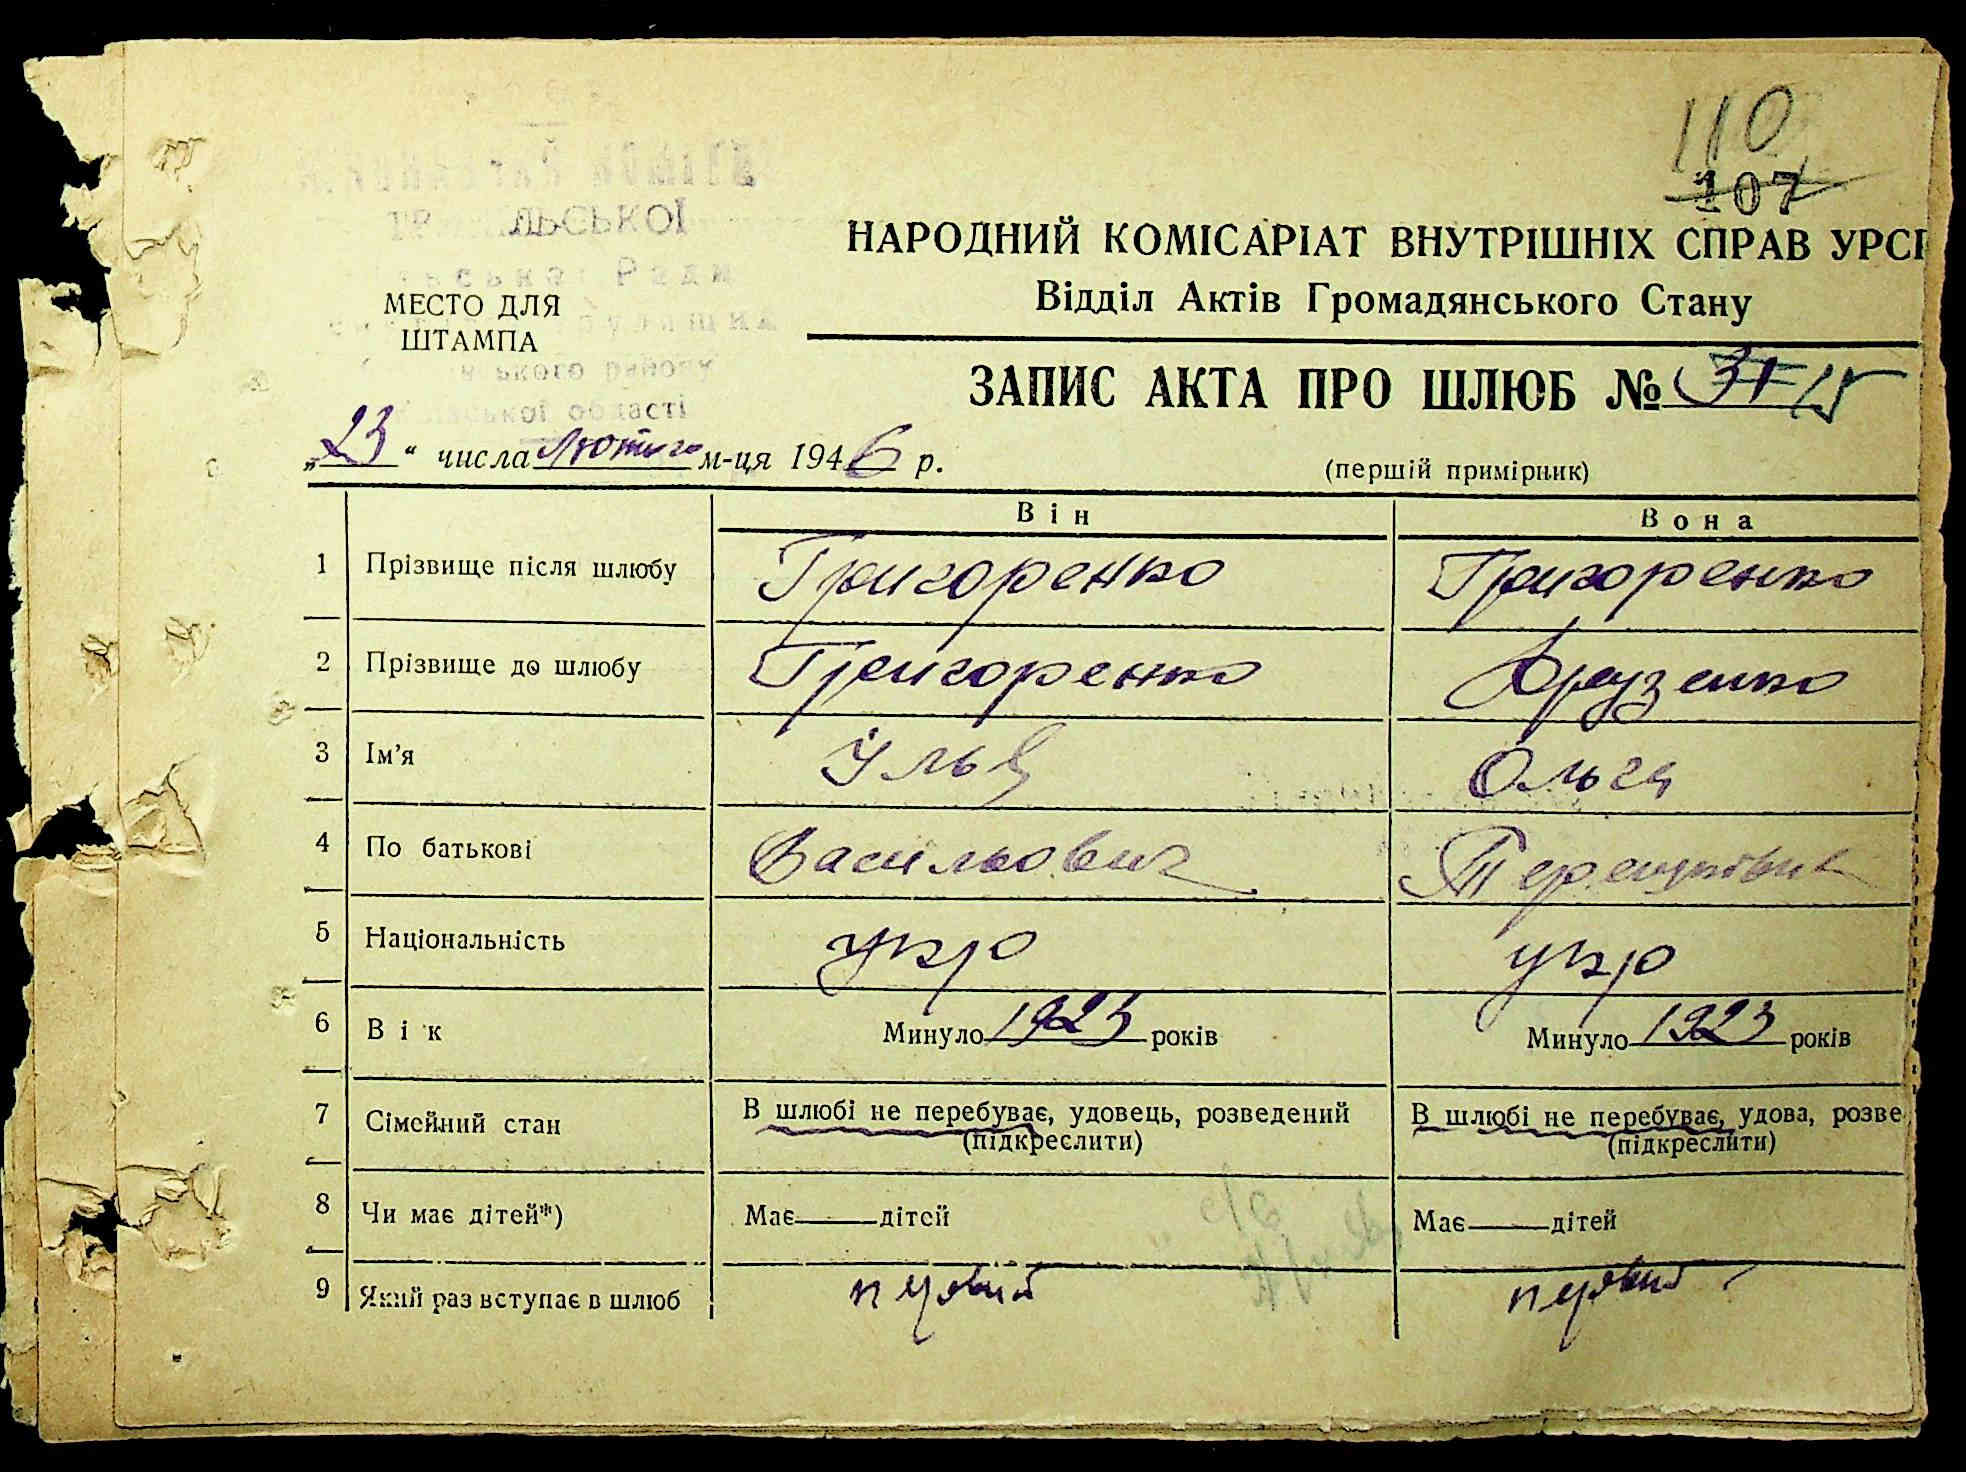 110
107
ЛЬСЬКОЇ
Ради
НАРОДНИЙ КОМІСАРІАТ ВНУТРІШНІХ СПРАВ УРСР
МЕСТО ДЛЯ
ШТАМПА
Відділ Актів Громадянського Стану
ького району
ської області
ЗАПИС АКТА ПРО ШЛЮБ № 31 15
„23“ числа Лютого м-ця 1946 р.
(першій примірник)
Він Вона
1 Прізвище після шлюбу Григоренко Григоренко
2 Прізвище до шлюбу Григоренко
3 Ім'я Ілья Ольга
4 По батькові Васильович
5 Національність укр укр
6 Вік Минуло 1923 років Минуло 1923 років
7 Сімейний стан В шлюбі не перебуває, удовець, розведений В шлюбі не перебуває, удова, розве
(підкреслити) (підкреслити)
8 Чи має дітей*) Має дітей Має дітей
9 Який раз вступає в шлюб первий первий